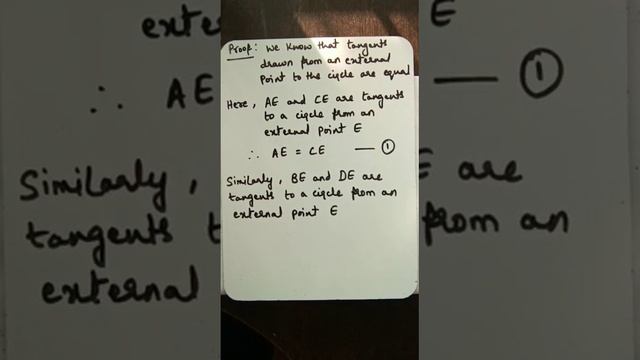 Proof: We know that tangents
drawn from an external
point to the circle are equal
Here, AE and CE are tangents
to a circle from an
external point E
∴ AE = CE — ①
Similarly, BE and DE are
tangents to a circle from an
external point E